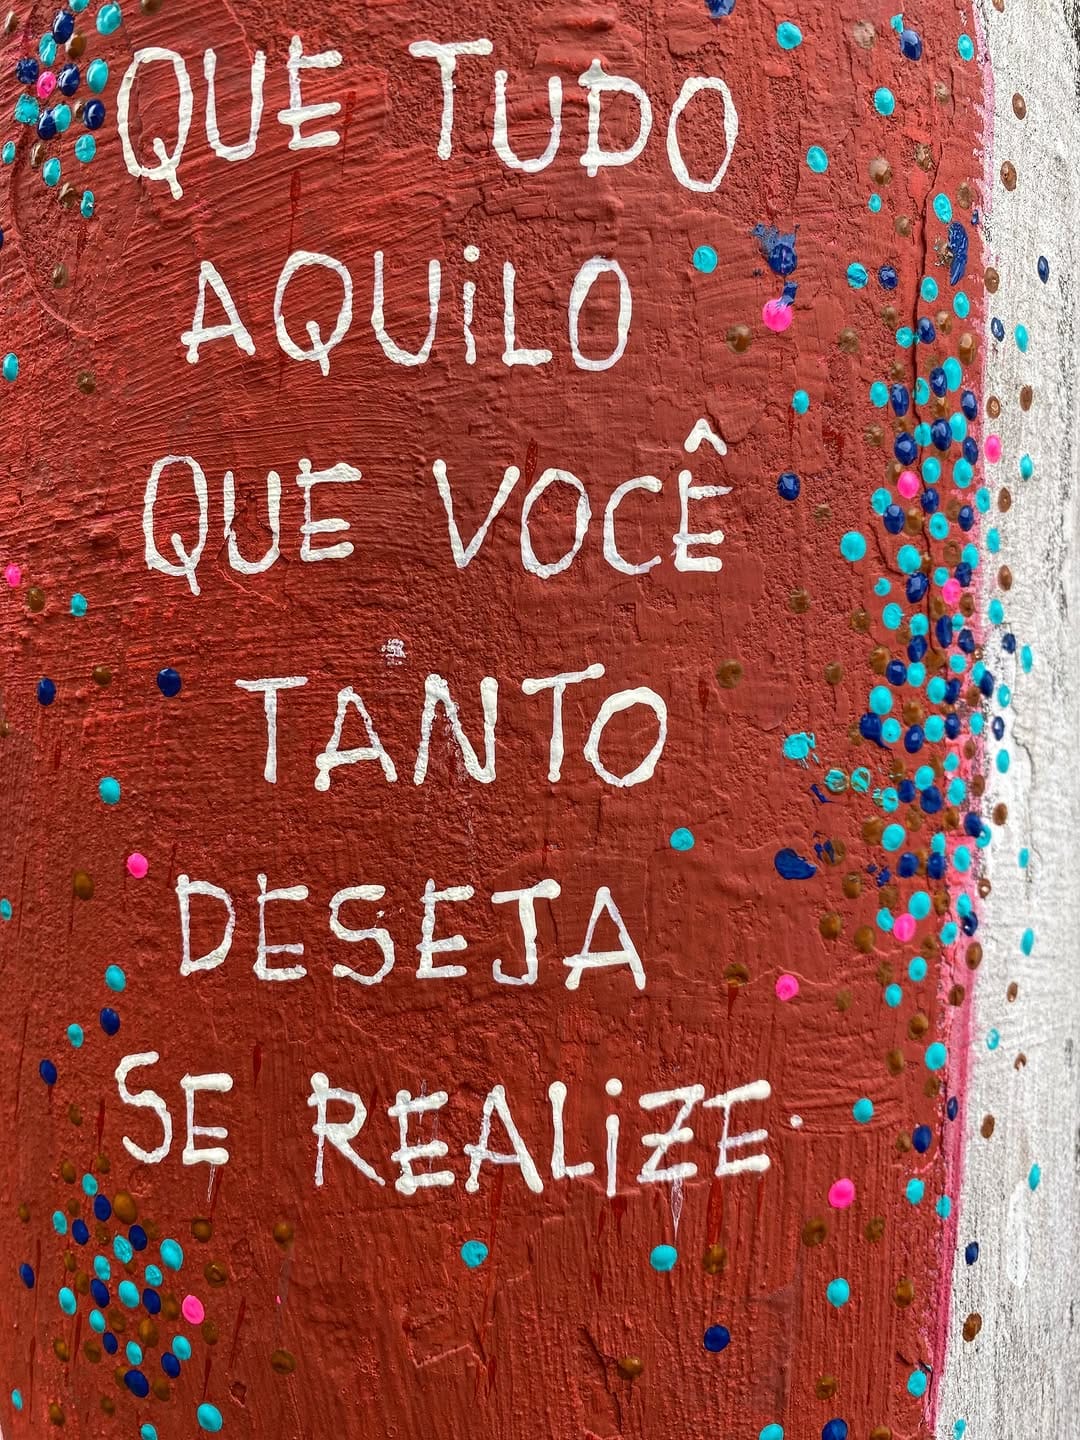 QUE TUDO
AQUiLO
QUE VOCÊ
TANTO
DESEJA
SE REALiZE.